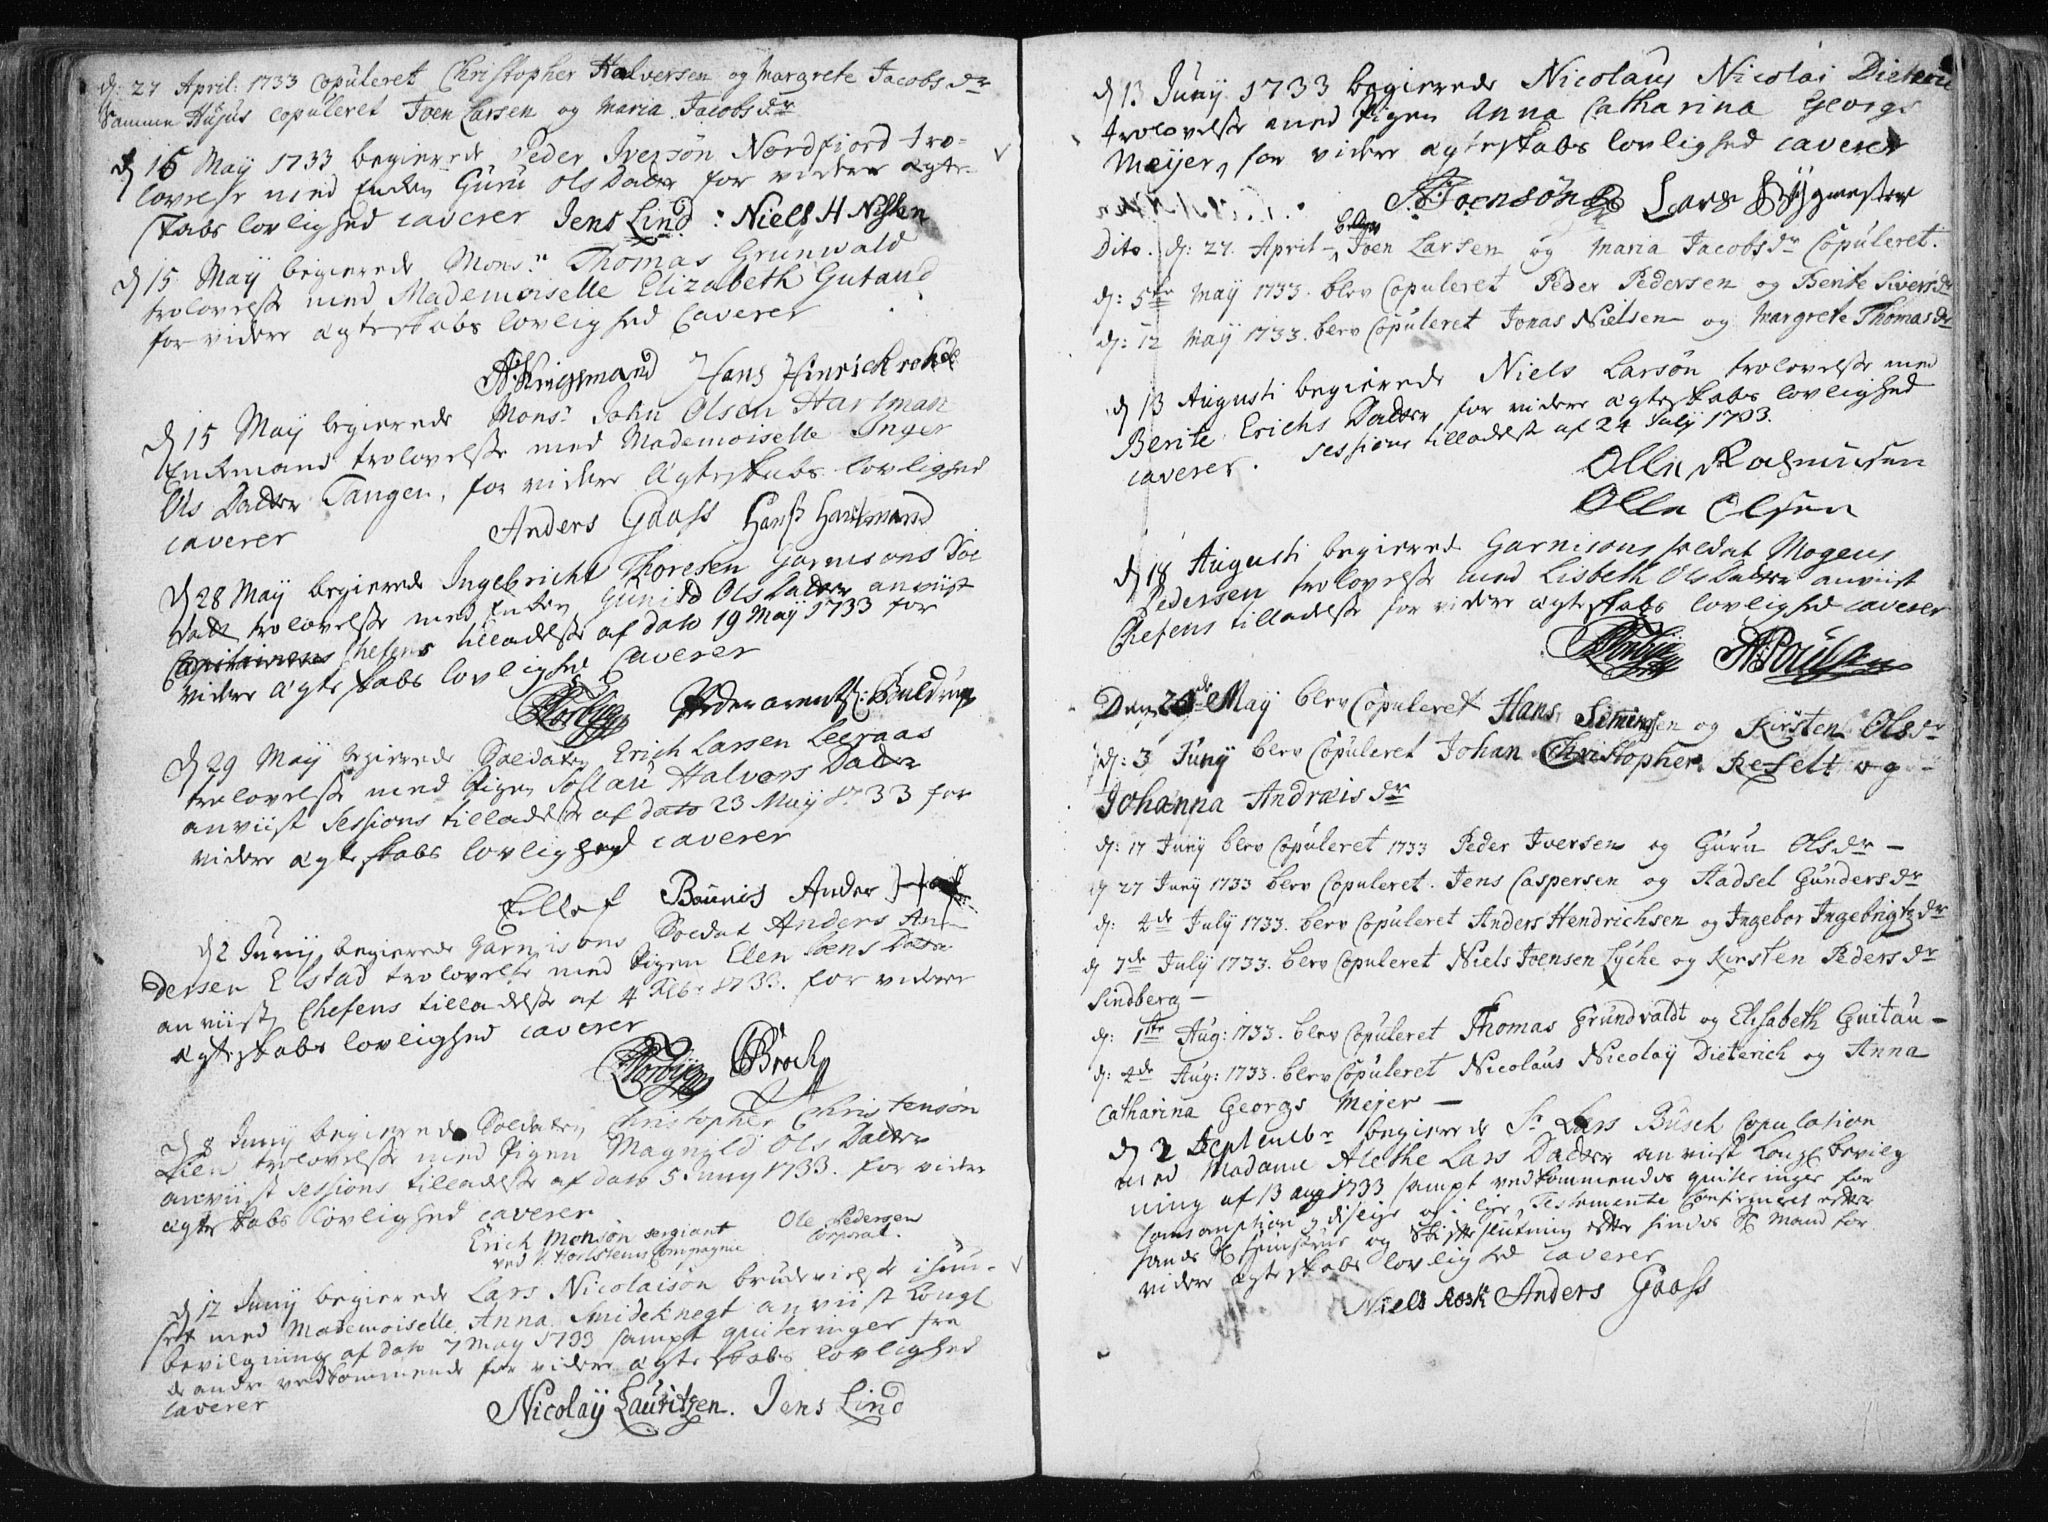 d: 27 April: 1733 Copuleret Christopher Halversen og Margrete Jacobsdr
Samme Hujus copuleret Joen Larsen og Maria Jacobsdr
d 16 May 1733 begierede Peder Iversön Nordfiord tro-
lovelse med Enken Guru Ols Datter for videre ægte-
skabs lovlighed caverer Jens Lind : Niels H Nissen
d 15 May begierede Monsr Thomas Grunwald
trolovelse med Mademoiselle Elizabeth Gutaud
for videre ægteskabs lovlighed Caverer
Hans Hinrich rohde
d 15 May begierede Monsr John Olsen Hartman
Enkemand trolovelse med Mademoiselle Inger
Ols Datter Tangen, for videre ægteskabs lovlighed
caverer Anders Gaass Hanss Hartmand
d 28 May begierede Ingebricht Thoresen Garnisons Sol
datt trolovelse med Enken Gunild Ols Datter anviist
Chefens tilladelse af dato 19 May 1733 for
videre ægteskabs lovlighed Caverer
d 29 May begierede Soldaten Erich Larsen Leeraas
trolovelse med Pigen Soslau Halvors Datter
anviist Sessions tilladelse af dato 23 May 1733 for
videre ægteskabs lovlighed caverer
Ellef Anders
d 2 Juny begierede Garnisons Soldat Anders An-
dersen Elstad trolovelse med Pigen Elen Joens Datter
anviist Chefens tilladelse af 4 1733. for videre
ægteskabs lovlighed caverer
Brock
d 8 Juny begierede Soldaten Christopher Christensön
Lien trolovelse med Pigen Magnild Ols Datter
anviist Sessions tilladelse af dato 5 Juny 1733. for videre
ægteskabs lovlighed caverer
Erich Monsön sergiant Ole Pedersen
ved Compagnie Corporal.
d 12 Juny begierede Lars Nicolaisön brudevielse i huu-
set med Mademoiselle Anna Smideknegt anviist Kongl
bevilgning af dato 7 May 1733 sampt quiteringer fra
de andre vedkommende for videre ægteskabs lovlighed
caverer Nicolaÿ Lauritzen. Jens Lind
d 13 Juny 1733 begierede Nicolaus Nicolai Dieterich
trolovelse med Pigen Anna Catharina Georgs
Meyer, for videre ægteskabs lovlighed caverer
Joensön Lars Bÿgmester
Dito. d: 27. April blev Joen Larsen og Maria Jacobsdr Copuleret.
d: 5te May 1733. blev Copuleret Peder Pedersen og Bente Siversdr
d: 12 May 1733. blev Copuleret Jonas Nielsen og Margrete Thomasdr
d 13 Augusti begierede Niels Larsön trolovelse med
Berite Erichs Datter for videre ægteskabs lovlighed
caverer. Sessions tilladelse af 24 July 1733.
Olle Rasmussen
Olle Olsen
d 18 Augusti begierede Garnisons soldat Mogens
Pedersen trolovelse med Lisbeth Ols Datter anviist
Chefens tilladelse for videre ægteskabs lovlighed caverer
Poulsen
Den 20de May blev Copuleret Hans Simensen og Kirsten Olsdr
d: 3 Juny blev Copuleret Johan Christopher Refelt og
Johanna Andræisdr
d: 17 Juny blev Copuleret 1733 Peder Iversen og Guru Olsdr —
d 27 Juny 1733 blev Copuleret. Jens Caspersen og Hadsel Gundersdr
d: 2de July 1733. blev Copuleret Anders Hendrichsen og Ingebor Ingebrigtzdr
d 7de July 1733. blev Copuleret Niels Joensen Lÿche og Kirsten Pedersdr
Lindberg —
d: 1ste Aug: 1733. blev Copuleret Thomas Grundvaldt og Elisabeth Guitau —
d: 4de Aug: 1733. blev Copuleret Nicolaus Nicolaÿ Dieterich og Anna
Catharina Georgs Mejer —
d 2 Septembr begierede Sr Lars Busch Copulation
med Madame Alethe Lars Datter anviist Kongl bevilg
ning af 13 aug 1733 sampt vedkommendes quiteringer for
Testamente Confirmeret efter
og Skifteslutning efter hindes Mand for
videre ægteskabs lovlighed caverer
Niels Rosk Anders Gaass